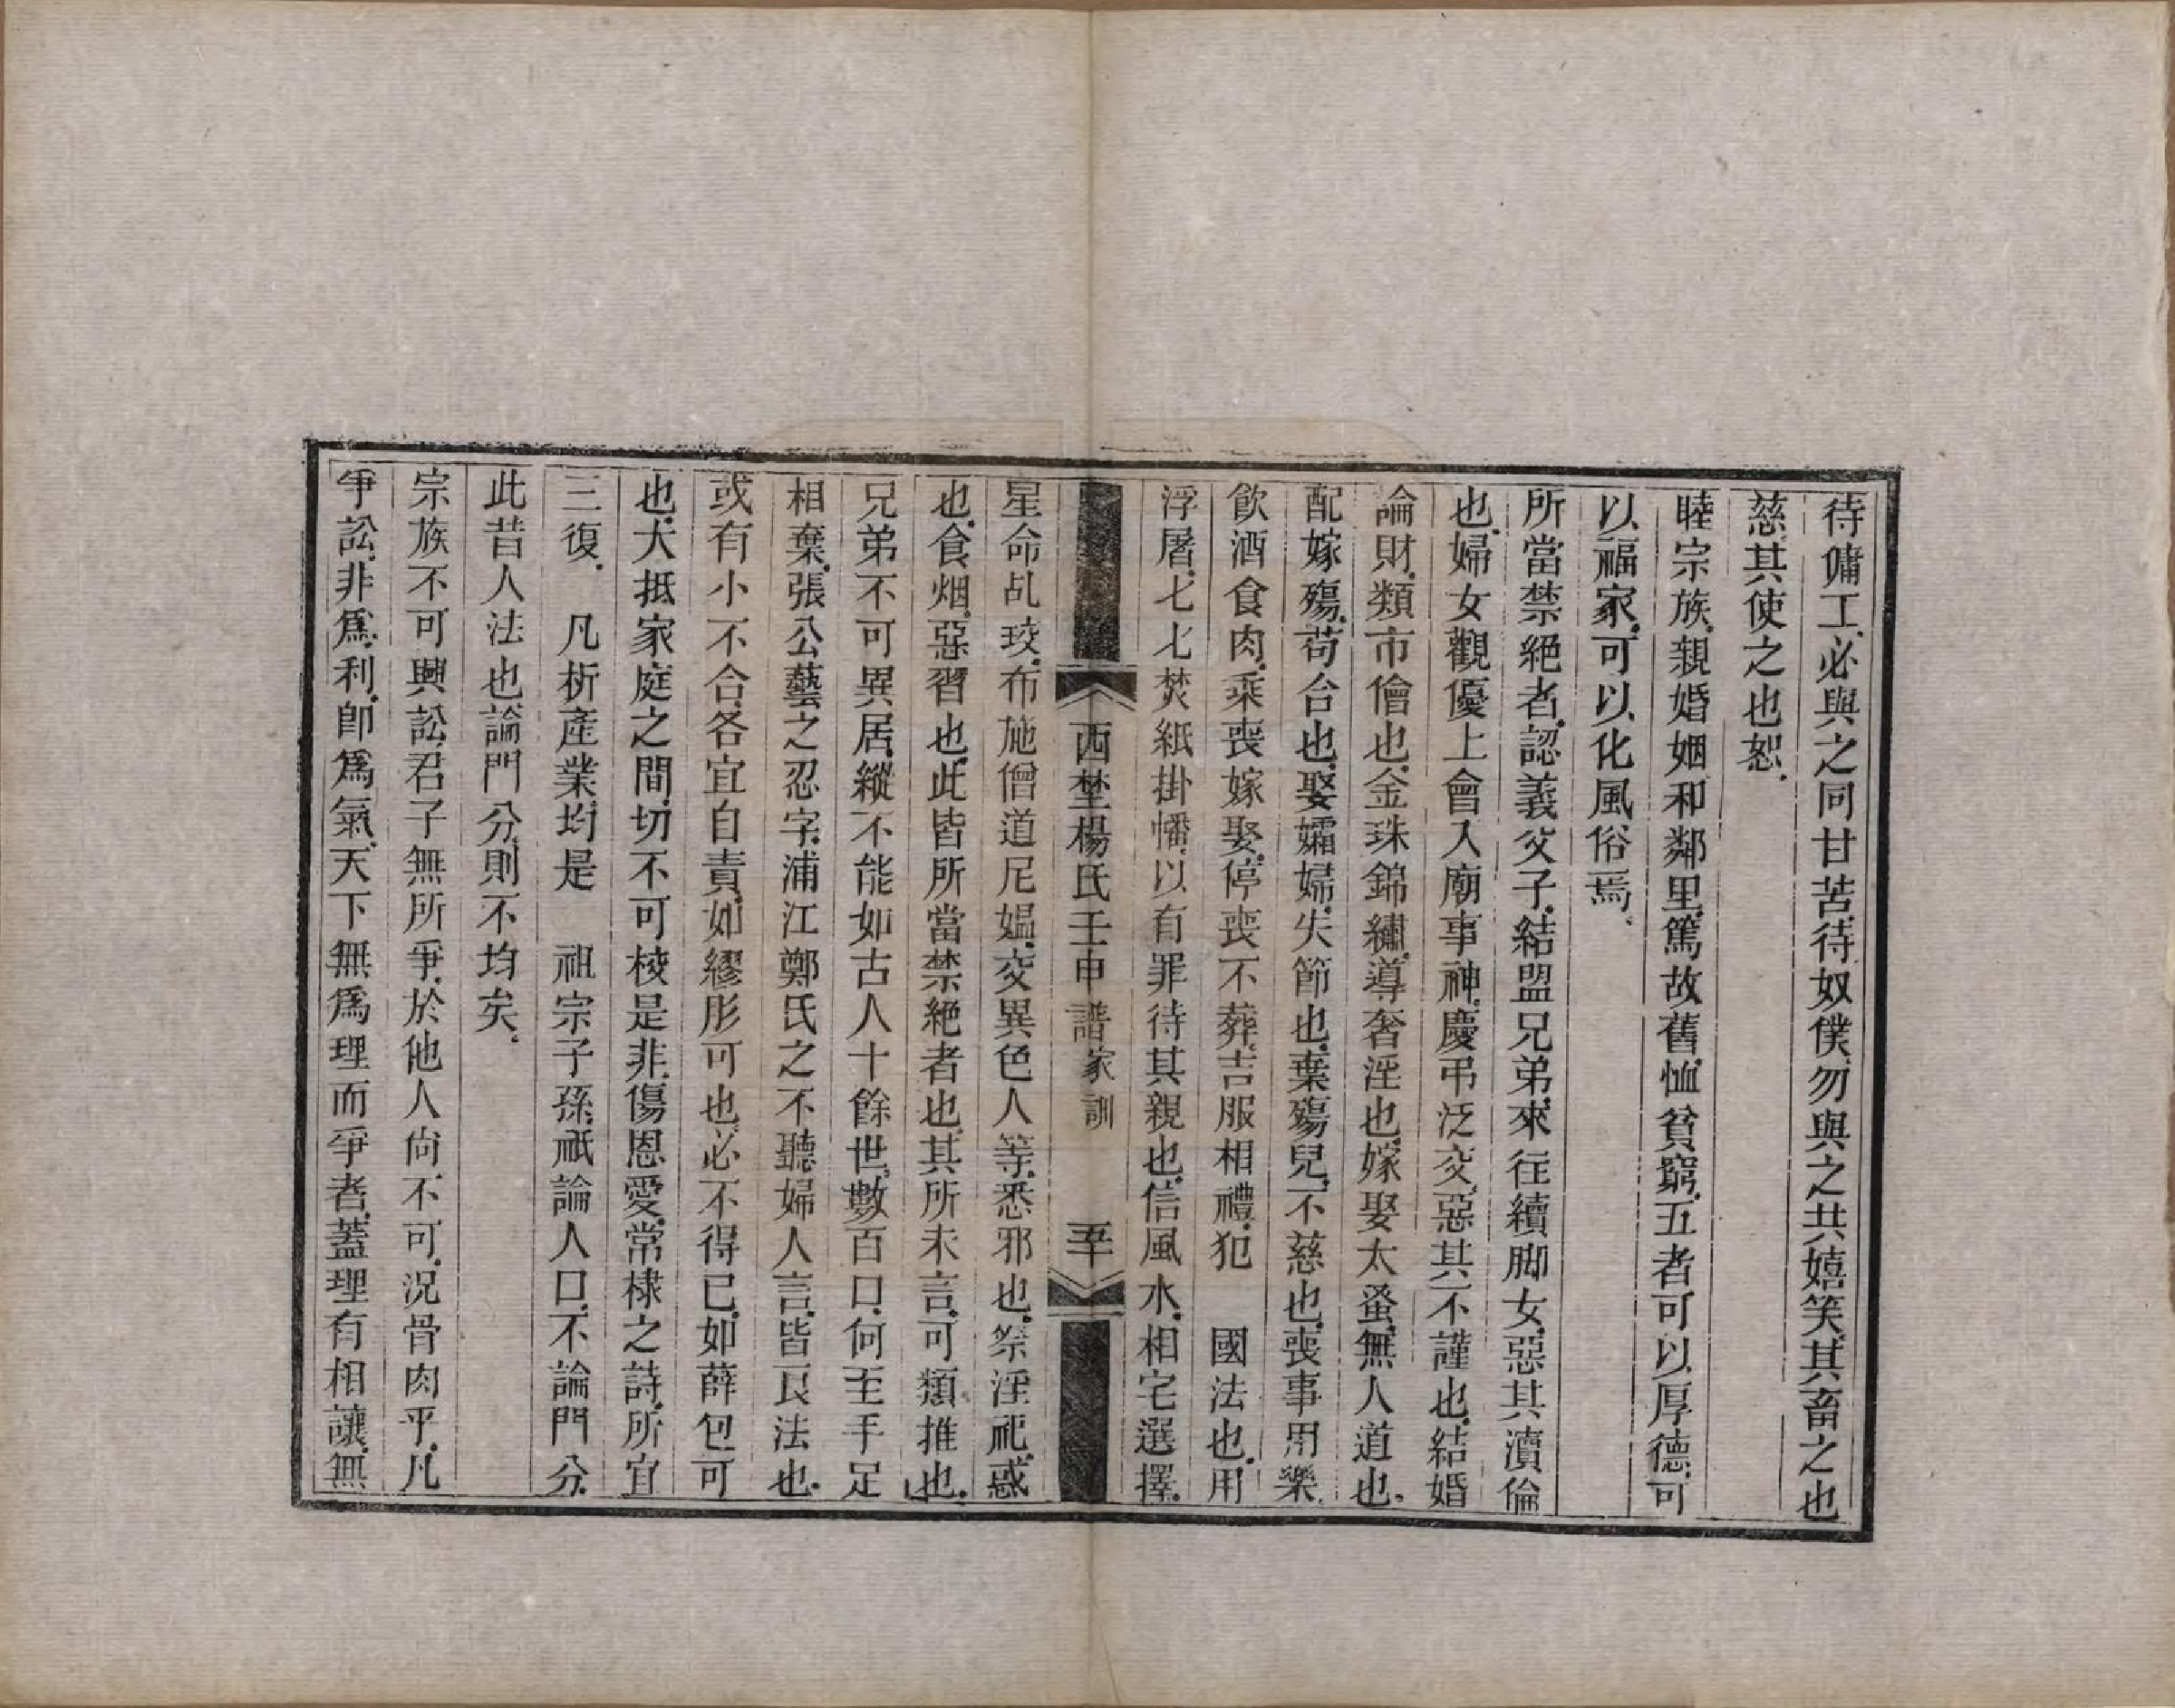 待傭工必與之同甘苦待奴僕勿與之共嬉笑其畜之也
慈其使之也恕
睦宗族親婚姻和鄰里篤故舊恤貧窮五者可以厚德可
以福家可以化風俗焉
所當禁絕者認義父子結盟兄弟來往續脚女惡其瀆倫
也婦女觀優上會入廟事神慶弔泛交惡其不謹也結婚
論財類市儈也金珠錦繡導奢淫也嫁娶太蚤無人道也
配嫁殤苟合也娶孀婦失節也棄殤兒不慈也喪事用樂
飲酒食肉乘喪嫁娶停喪不葬吉服相禮犯 國法也用
浮屠七七焚紙掛幡以有罪待其親也信風水相宅選擇
西埜楊氏壬申譜家訓 五十
星命乩珓布施僧道尼媼交異色人等悉邪也祭淫祀惑
也食烟惡習也此皆所當禁絕者也其所未言可類推也
兄弟不可異居縱不能如古人十餘世數百口何至手足
相棄張公藝之忍字浦江鄭氏之不聽婦人言皆良法也
或有小不合各宜自責如繆肜可也必不得已如薛包可
也大抵家庭之間切不可校是非傷恩愛常棣之詩所宜
三復 凡析產業均是 祖宗子孫祇論人口不論門分
此昔人法也論門分則不均矣
宗族不可興訟君子無所爭於他人尙不可況骨肉乎凡
爭訟非爲利卽爲氣天下無爲理而爭者蓋理有相讓無